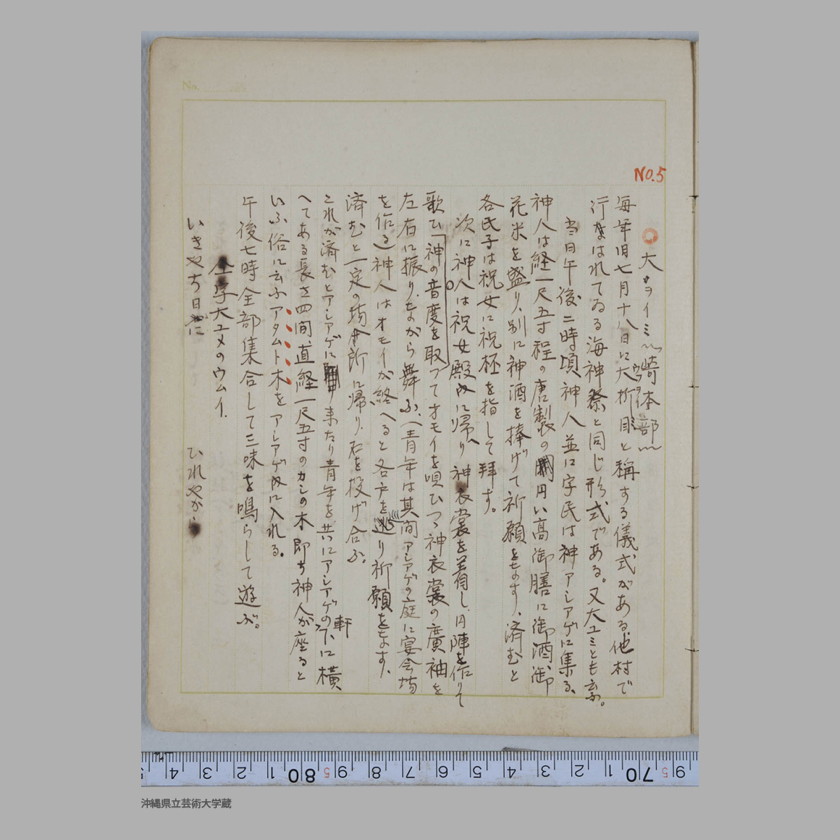 No.5
大ヲイミ〰崎本部〰
毎年旧七月十八日に大折目と稱する儀式がある他村で
ウフウイミ
行なはれてゐる海神祭と同じ形式である。又大ユミとも云ふ。
当日午後二時頃神人並に字民は神アシアゲに集る、
神人は経一尺五寸程の唐製の円い高御膳に御酒、御
花米を盛り、別に神酒を捧げて祈願をなす、済むと
各氏子は祝女に祝杯を指して拜す。
次に神人は祝女殿内に帰り神衣裳を着し、円陣を作りて
歌ひ「神の音度を取つてオモイを唄ひつゝ神衣裳の廣袖を
左右に振りながら舞ふ、（青年は其間アシアゲの庭に宴会場
を作る）神人はオモイが終へると各戸を廻り祈願をなす、
済むと一定の場所に帰り、石を投げ合ふ
これが済むとアシアゲに来たり青年と共にアシアゲの軒下に横
へてある長さ四間、直経一尺五寸のカシの木即ち神人が座ると
いふ俗に云ふアタムト木をアシアゲ内に入れる。
午後七時全部集合して三味を鳴らして遊ぶ。
大ユメのウムイ．
いきやち日に
ひれやから
No.
9 70 1 2 3 4 5 6 7 8 9 80 1 2 3 4
沖縄県立芸術大学蔵